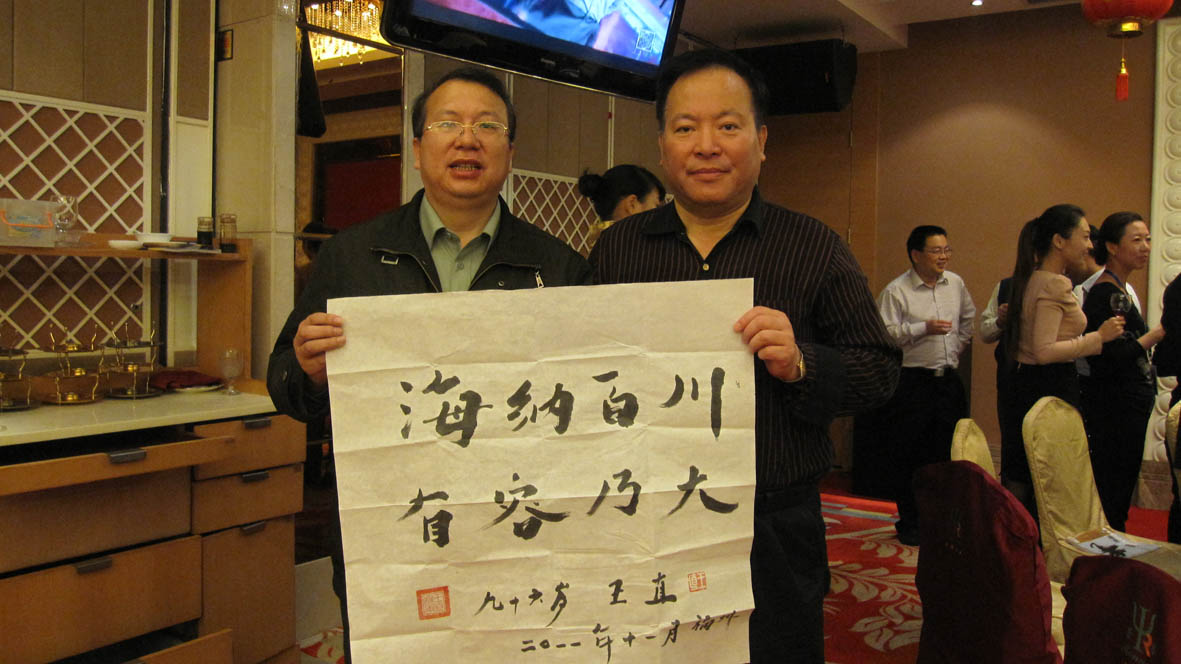 海纳百川
有容乃大
九十六岁 王直
二〇一一年十一月福州